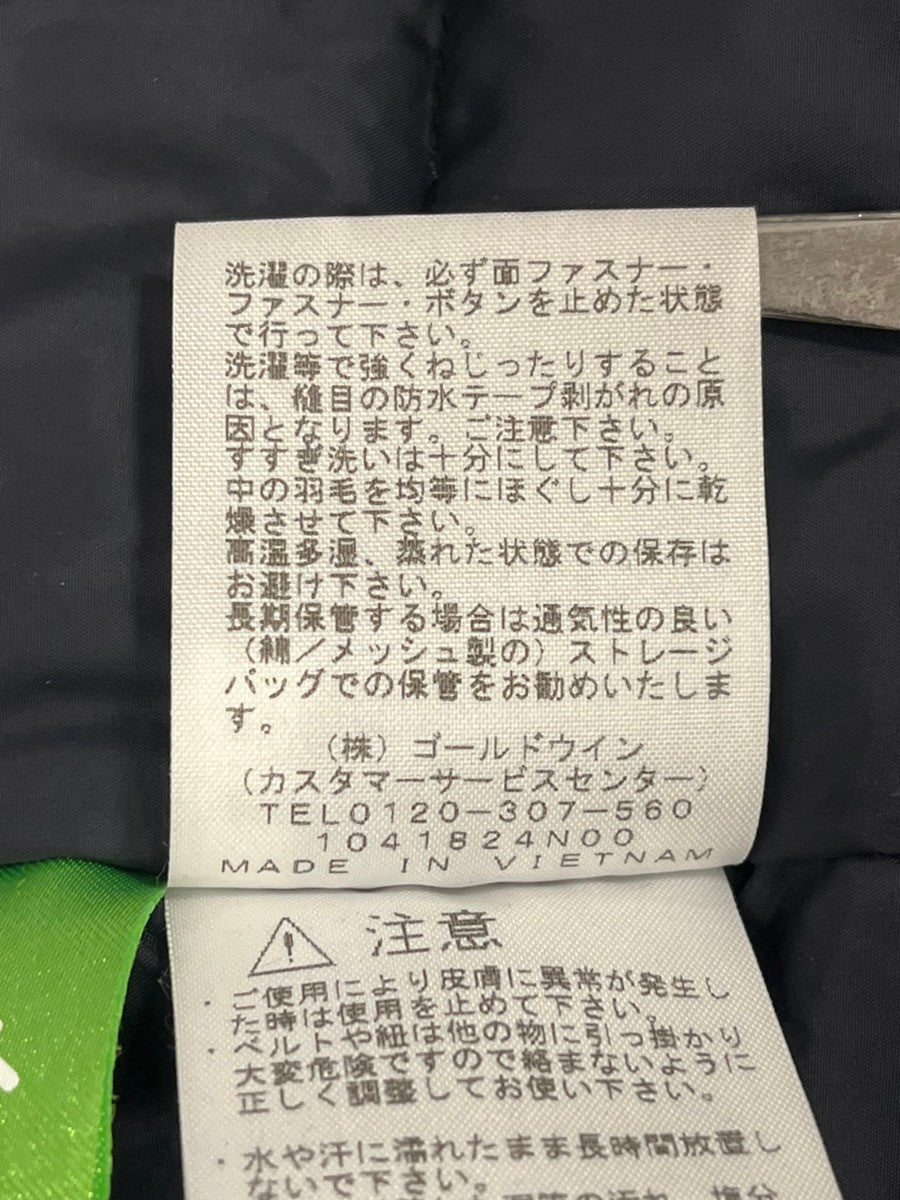 洗濯の際は、必ず面ファスナー・
ファスナー・ボタンを止めた状態
で行って下さい。
洗濯等で強くねじったりすること
は、縫目の防水テープ剥がれの原
因となります。ご注意下さい。
すすぎ洗いは十分にして下さい。
中の羽毛を均等にほぐし十分に乾
燥させて下さい。
高温多湿、蒸れた状態での保存は
お避け下さい。
長期保管する場合は通気性の良い
(綿／メッシュ製の)ストレージ
バッグでの保管をお勧めいたしま
す。
(株)ゴールドウイン
(カスタマーサービスセンター)
TEL0120-307-560
1041824N00
MADE IN VIETNAM
注意
・ご使用により皮膚に異常が発生し
た時は使用を止めて下さい。
・ベルトや紐は他の物に引っ掛かり
大変危険ですので絡まないように
正しく調整してお使い下さい。
・水や汗に濡れたまま長時間放置し
ないで下さい。